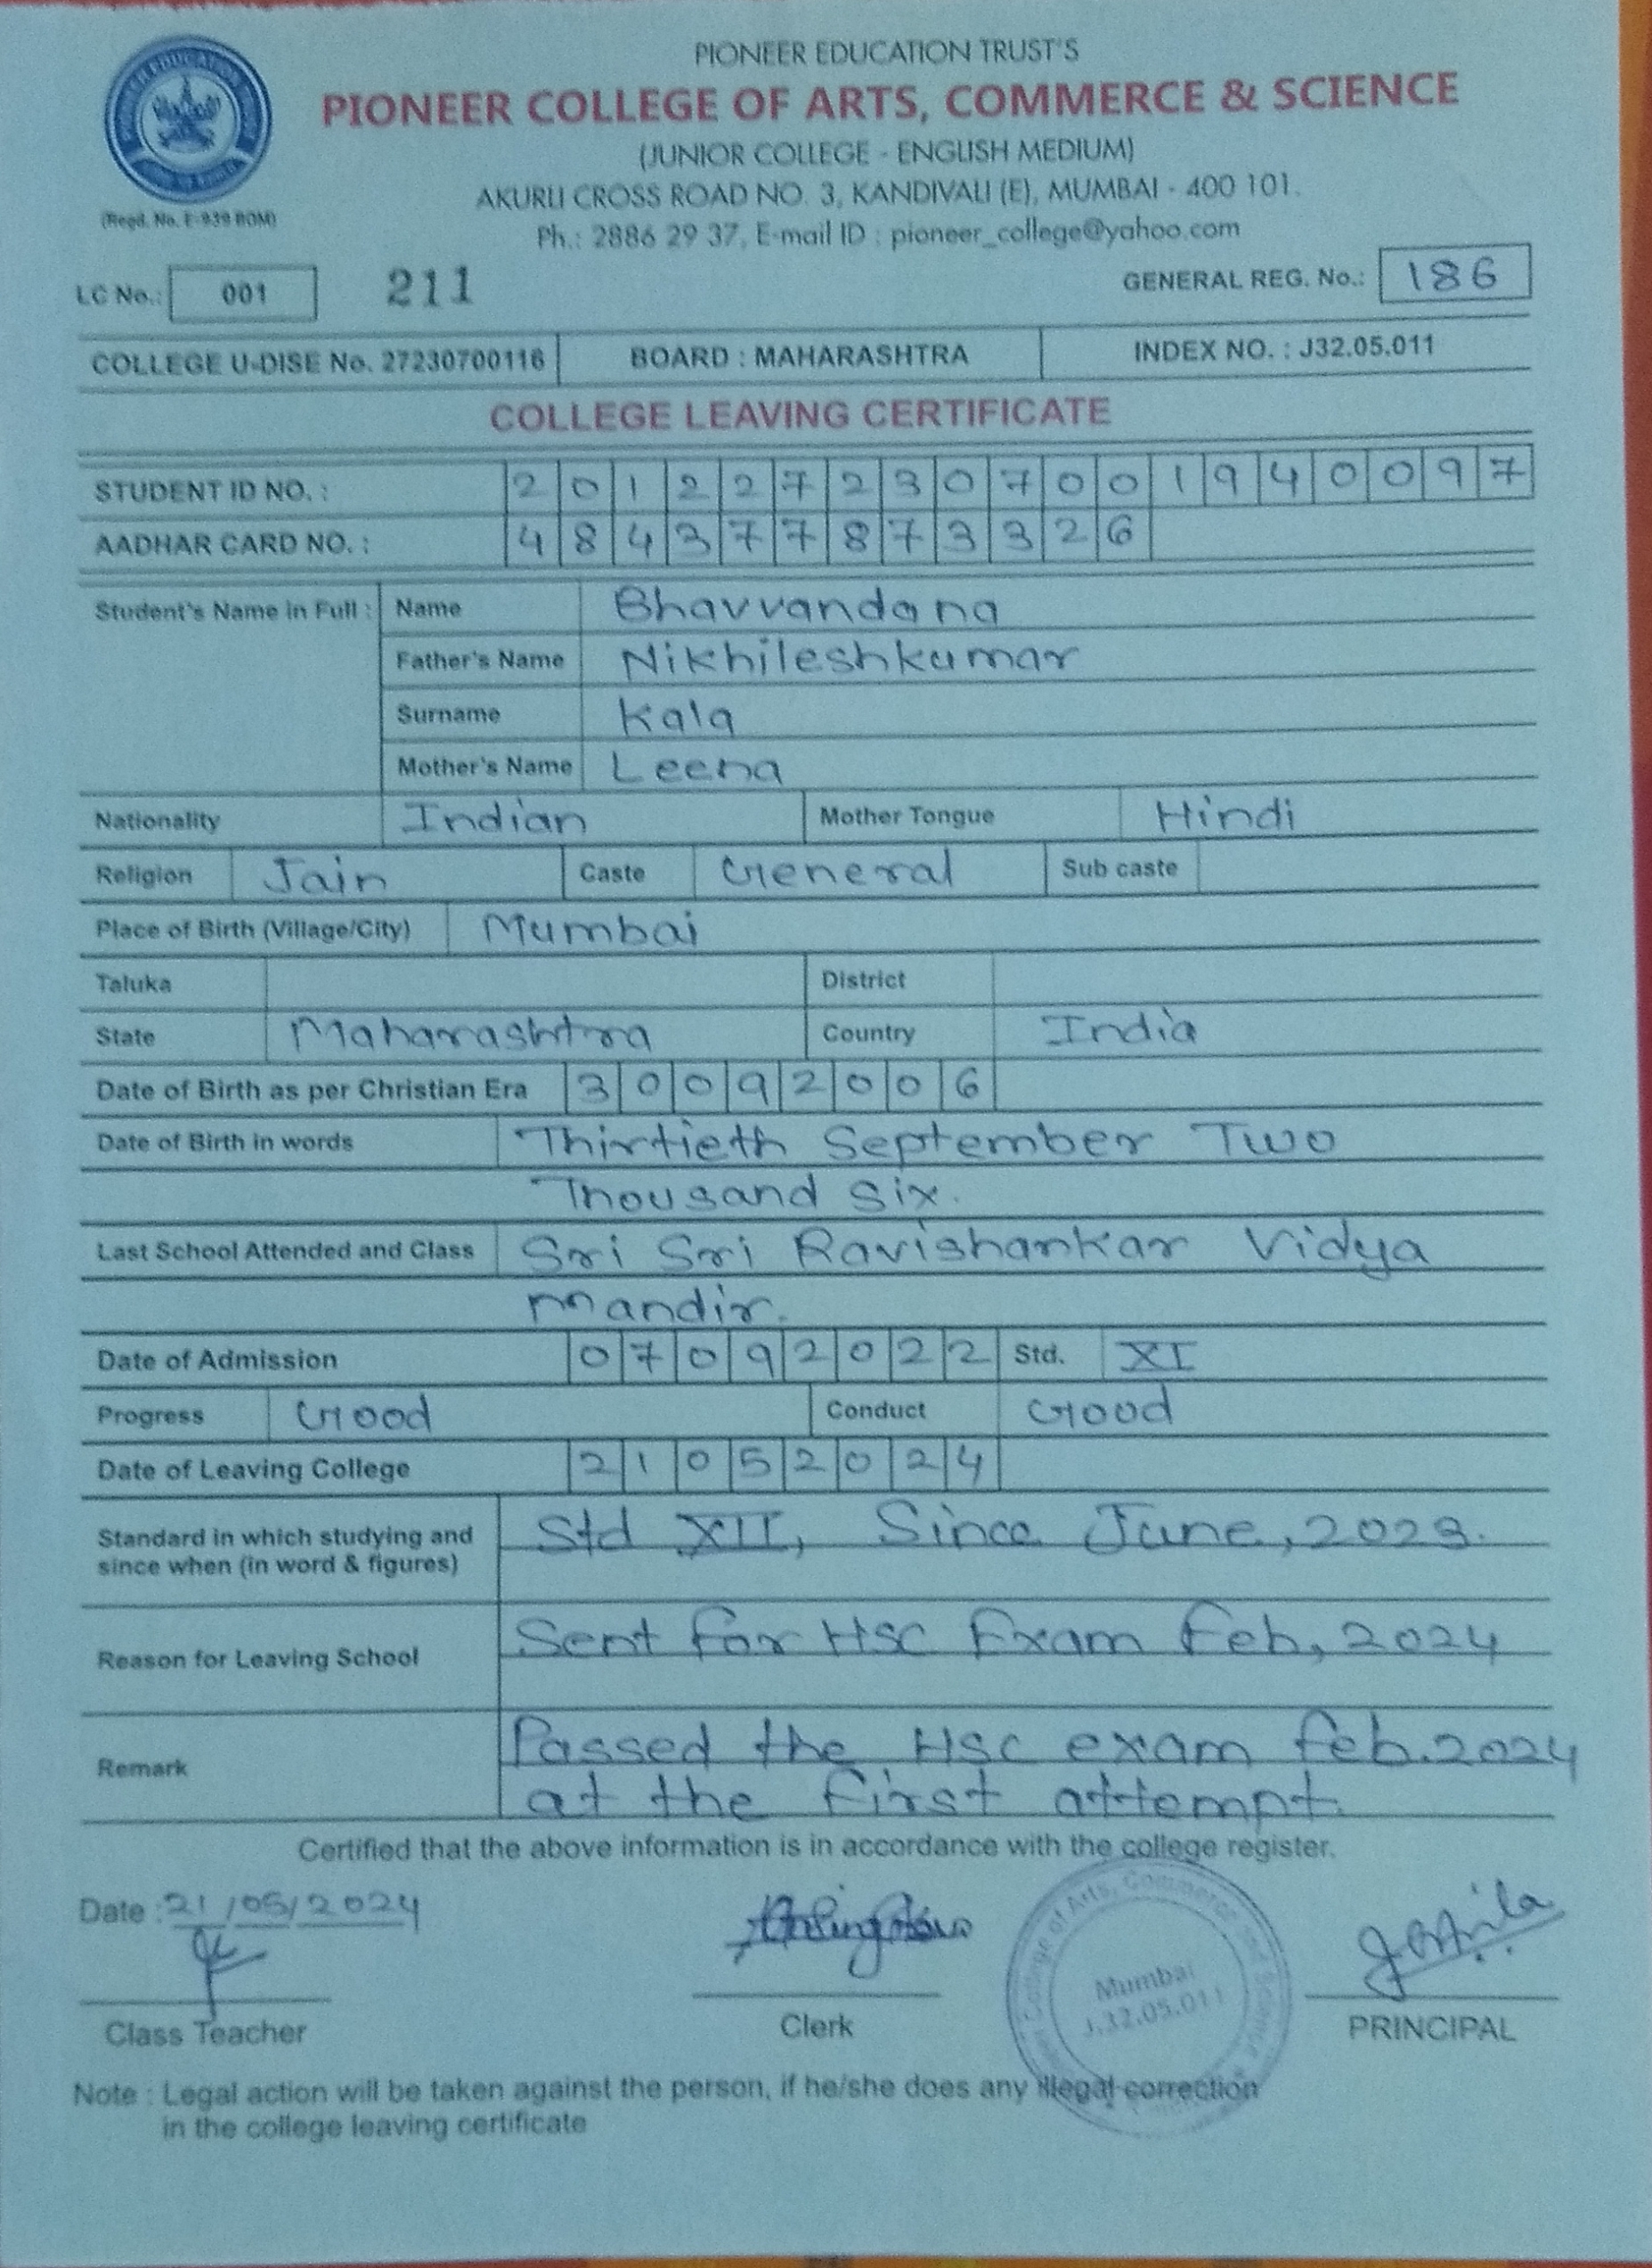 PIONEER EDUCATION TRUST'S
PIONEER COLLEGE OF ARTS, COMMERCE & SCIENCE
(JUNIOR COLLEGE - ENGLISH MEDIUM)
AKURLI CROSS ROAD NO. 3, KANDIVALI (E), MUMBAI - 400 101.
(Regd. No. E-939 BOM)
Ph.: 2886 29 37, E-mail ID : pioneer_college@yahoo.com
LC No.: 001 211 GENERAL REG. No.: 186
COLLEGE U-DISE No. 27230700116 BOARD : MAHARASHTRA INDEX NO. : J32.05.011
COLLEGE LEAVING CERTIFICATE
STUDENT ID NO. : 2012272307001940097
AADHAR CARD NO. : 484377873326
Student's Name in Full : Name Bhavvandana
Father's Name Nikhileshkumar
Surname Kala
Mother's Name Leena
Nationality Indian Mother Tongue Hindi
Religion Jain Caste General Sub caste
Place of Birth (Village/City) Mumbai
Taluka District
State Maharashtra Country India
Date of Birth as per Christian Era 30092006
Date of Birth in words Thirtieth September Two
Thousand six.
Last School Attended and Class Sri Sri Ravishankar Vidya
mandir.
Date of Admission 07092022 Std. XI
Progress Good Conduct Good
Date of Leaving College 21052024
Standard in which studying and
since when (in word & figures) Std XII, Since June, 2023.
Reason for Leaving School Sent for HSC Exam Feb, 2024
Remark Passed the HSC exam feb.2024
at the first attempt.
Certified that the above information is in accordance with the college register.
Date : 21/05/2024
College of Arts, Commerce and Science
Mumbai
J.32.05.011
Class Teacher Clerk PRINCIPAL
Note : Legal action will be taken against the person, if he/she does any illegal correction
in the college leaving certificate